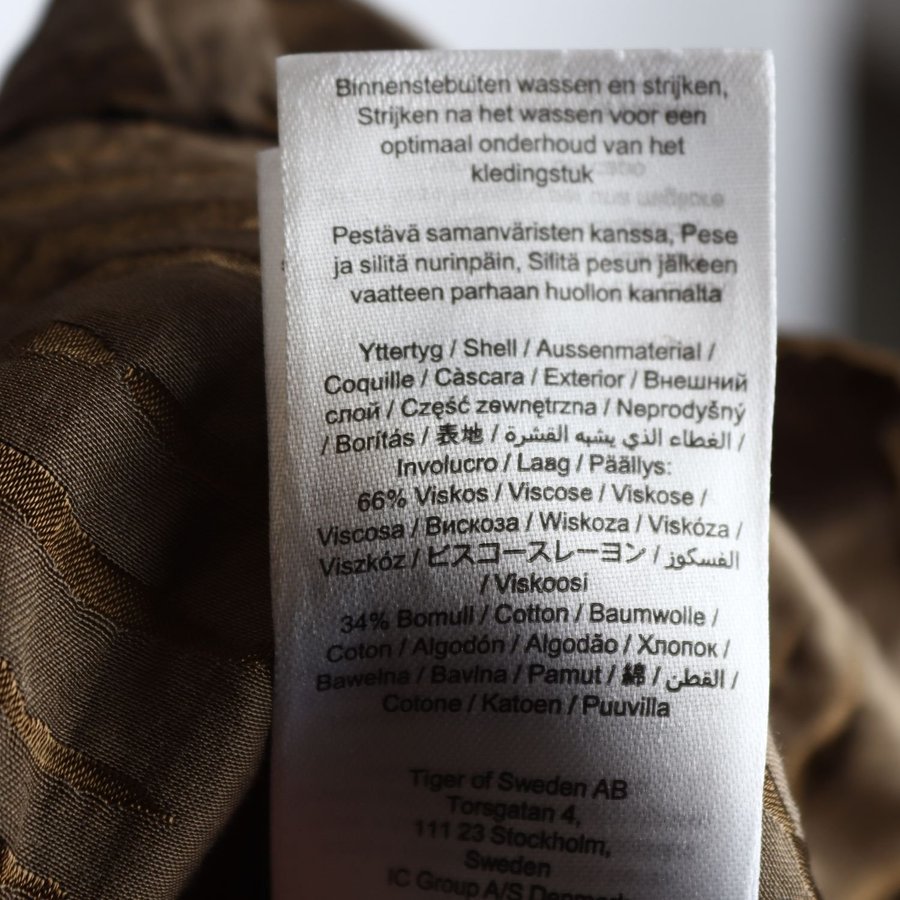 Binnenstebuiten wassen en strijken,
Strijken na het wassen voor een
optimaal onderhoud van het
kledingstuk
Pestävä samanväristen kanssa, Pese
ja silitä nurinpäin, Silitä pesun jälkeen
vaatteen parhaan huollon kannalta
Yttertyg / Shell / Aussenmaterial /
Coquille / Càscara / Exterior / Внешний
слой / Część zewnętrzna / Neprodyšný
/ Borítás / 表地 / الغطاء الذي يشبه القشرة /
Involucro / Laag / Päällys:
66% Viskos / Viscose / Viskose /
Viscosa / Вискоза / Wiskoza / Viskóza /
Viszkóz / ビスコースレーヨン / الفسكوز
/ Viskoosi
34% Bomull / Cotton / Baumwolle /
Coton / Algodón / Algodão / Хлопок /
Bawełna / Bavlna / Pamut / 綿 / القطن /
Cotone / Katoen / Puuvilla
Tiger of Sweden AB
Torsgatan 4,
111 23 Stockholm,
Sweden
IC Group A/S Denmark